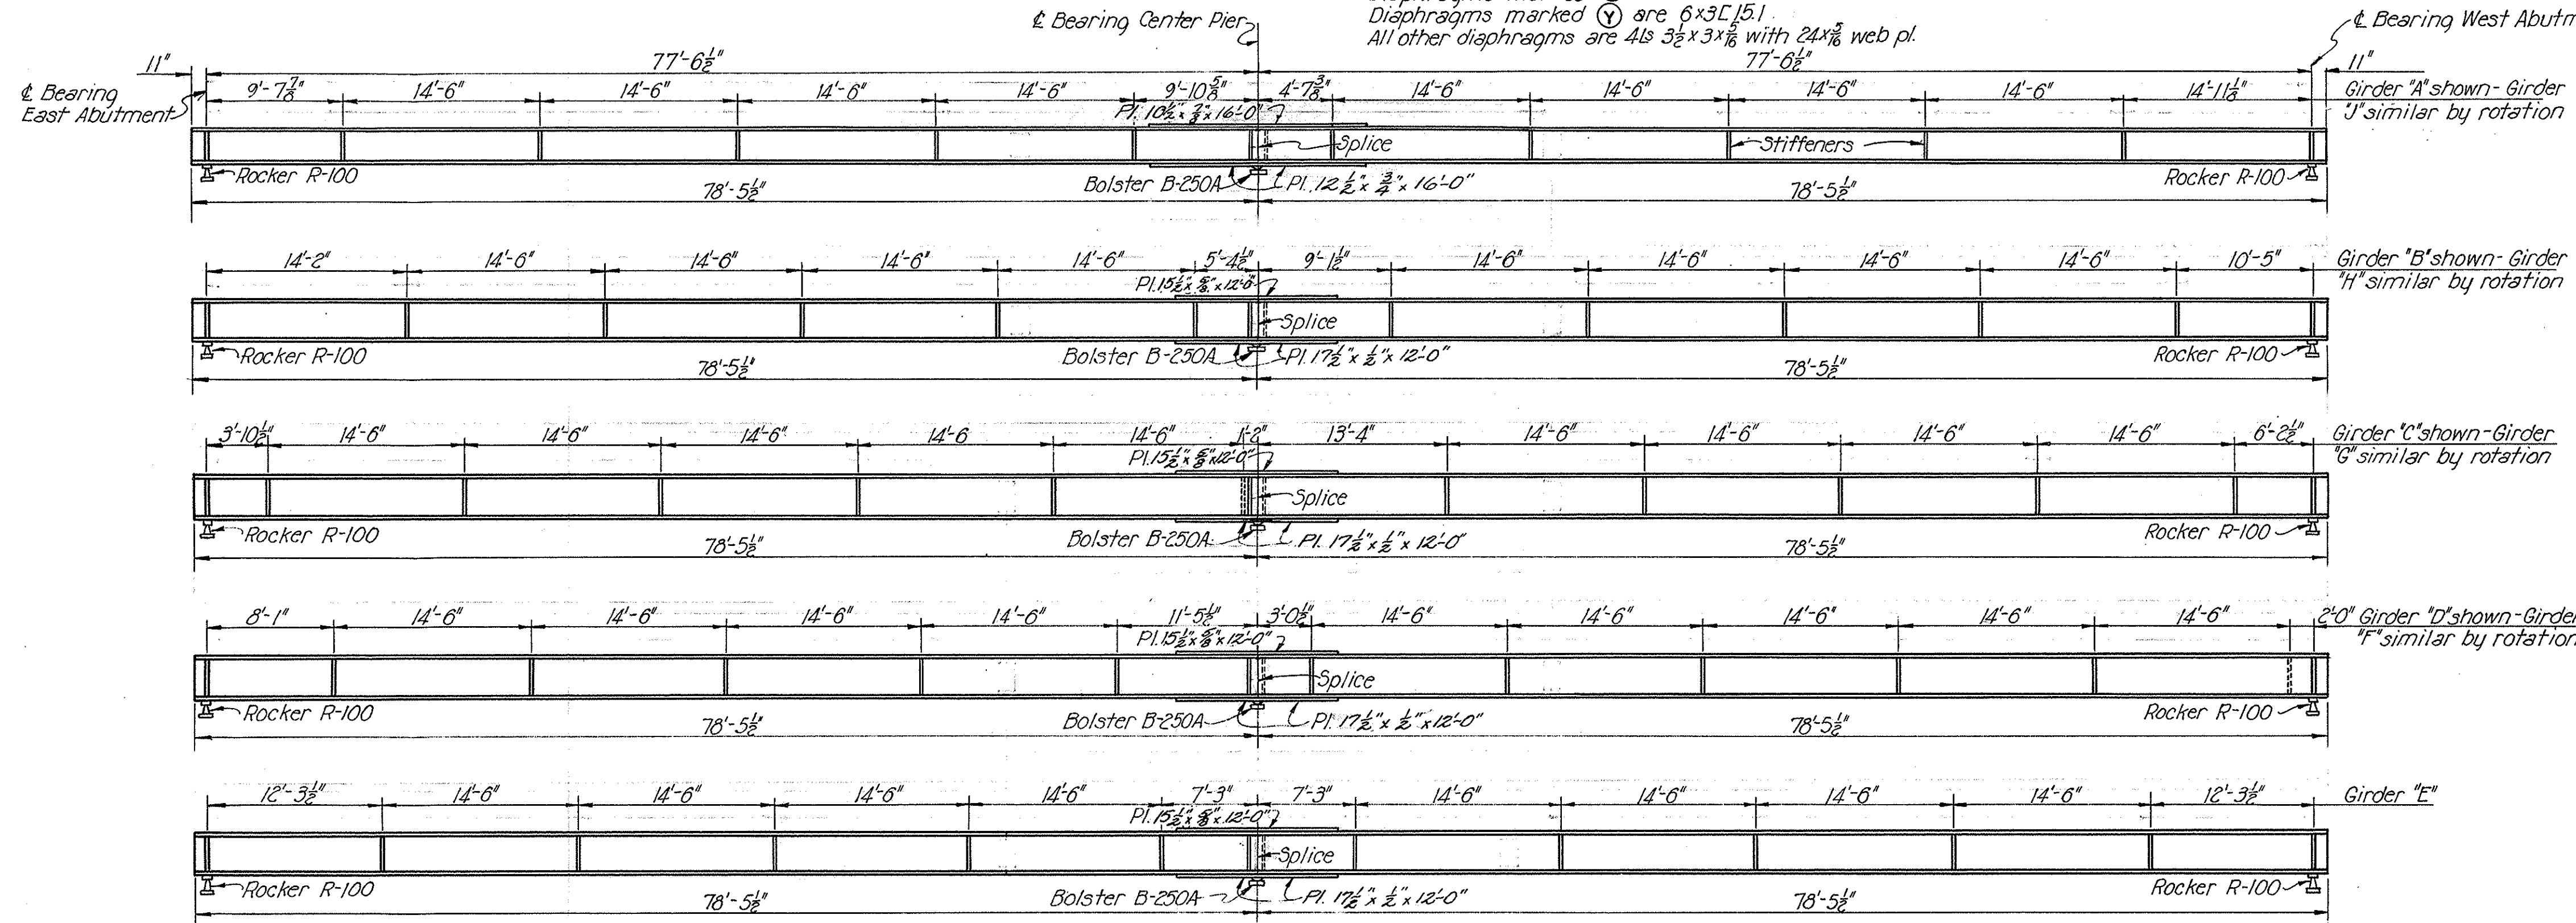 ℄ Bearing Center Pier
Diaphragms marked Ⓨ are 6x3[15.1
All other diaphragms are 4Ls 3½x3x5/16 with 24x5/16 web pl.
℄ Bearing West Abutm
11" 77'-6½" 77'-6½" 11"
℄ Bearing
East Abutment
9'-7⅞" 14'-6" 14'-6" 14'-6" 14'-6" 9'-10⅝" 4'-7⅜" 14'-6" 14'-6" 14'-6" 14'-6" 14'-11⅛"
Girder "A" shown - Girder
"J" similar by rotation
Pl. 10½"x⅞"x16'-0"
Splice
Stiffeners
Rocker R-100 Bolster B-250A Pl. 12½"x¾"x16'-0" Rocker R-100
78'-5½" 78'-5½"
14'-2" 14'-6" 14'-6" 14'-6" 14'-6" 5'-4½" 9'-1½" 14'-6" 14'-6" 14'-6" 14'-6" 10'-5"
Girder "B" shown - Girder
"H" similar by rotation
Pl. 15½"x⅝"x12'-0"
Splice
Rocker R-100 Bolster B-250A Pl. 17½"x½"x12'-0" Rocker R-100
78'-5½" 78'-5½"
3'-10½" 14'-6" 14'-6" 14'-6" 14'-6 14'-6" 1'-2" 13'-4" 14'-6" 14'-6" 14'-6" 14'-6" 6'-2½"
Girder "C" shown - Girder
"G" similar by rotation
Pl. 15½"x⅝"x12'-0"
Splice
Rocker R-100 Bolster B-250A Pl. 17½"x½"x12'-0" Rocker R-100
78'-5½" 78'-5½"
8'-1" 14'-6" 14'-6" 14'-6" 14'-6" 11'-5½" 3'-0½" 14'-6" 14'-6" 14'-6" 14'-6" 14'-6" 2'-0"
Girder "D" shown - Girder
"F" similar by rotation
Pl. 15½"x⅝"x12'-0"
Splice
Rocker R-100 Bolster B-250A Pl. 17½"x½"x12'-0" Rocker R-100
78'-5½" 78'-5½"
12'-3½" 14'-6" 14'-6" 14'-6" 14'-6" 7'-3" 7'-3" 14'-6" 14'-6" 14'-6" 14'-6" 12'-3½"
Girder "E"
Pl. 15½"x⅝"x12'-0"
Splice
Rocker R-100 Bolster B-250A Pl. 17½"x½"x12'-0" Rocker R-100
78'-5½" 78'-5½"